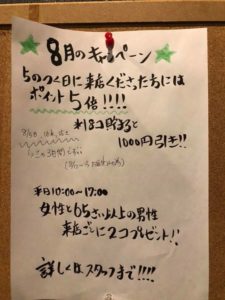 8月のキャンペーン
5のつく日に来店くださった方には
ポイント5倍!!!!
18コ貯まると
1000円引き!!
平日10:00~17:00
女性と65さい以上の男性
来店ごとに2コプレゼント!!
詳しくはスタッフまで!!!!